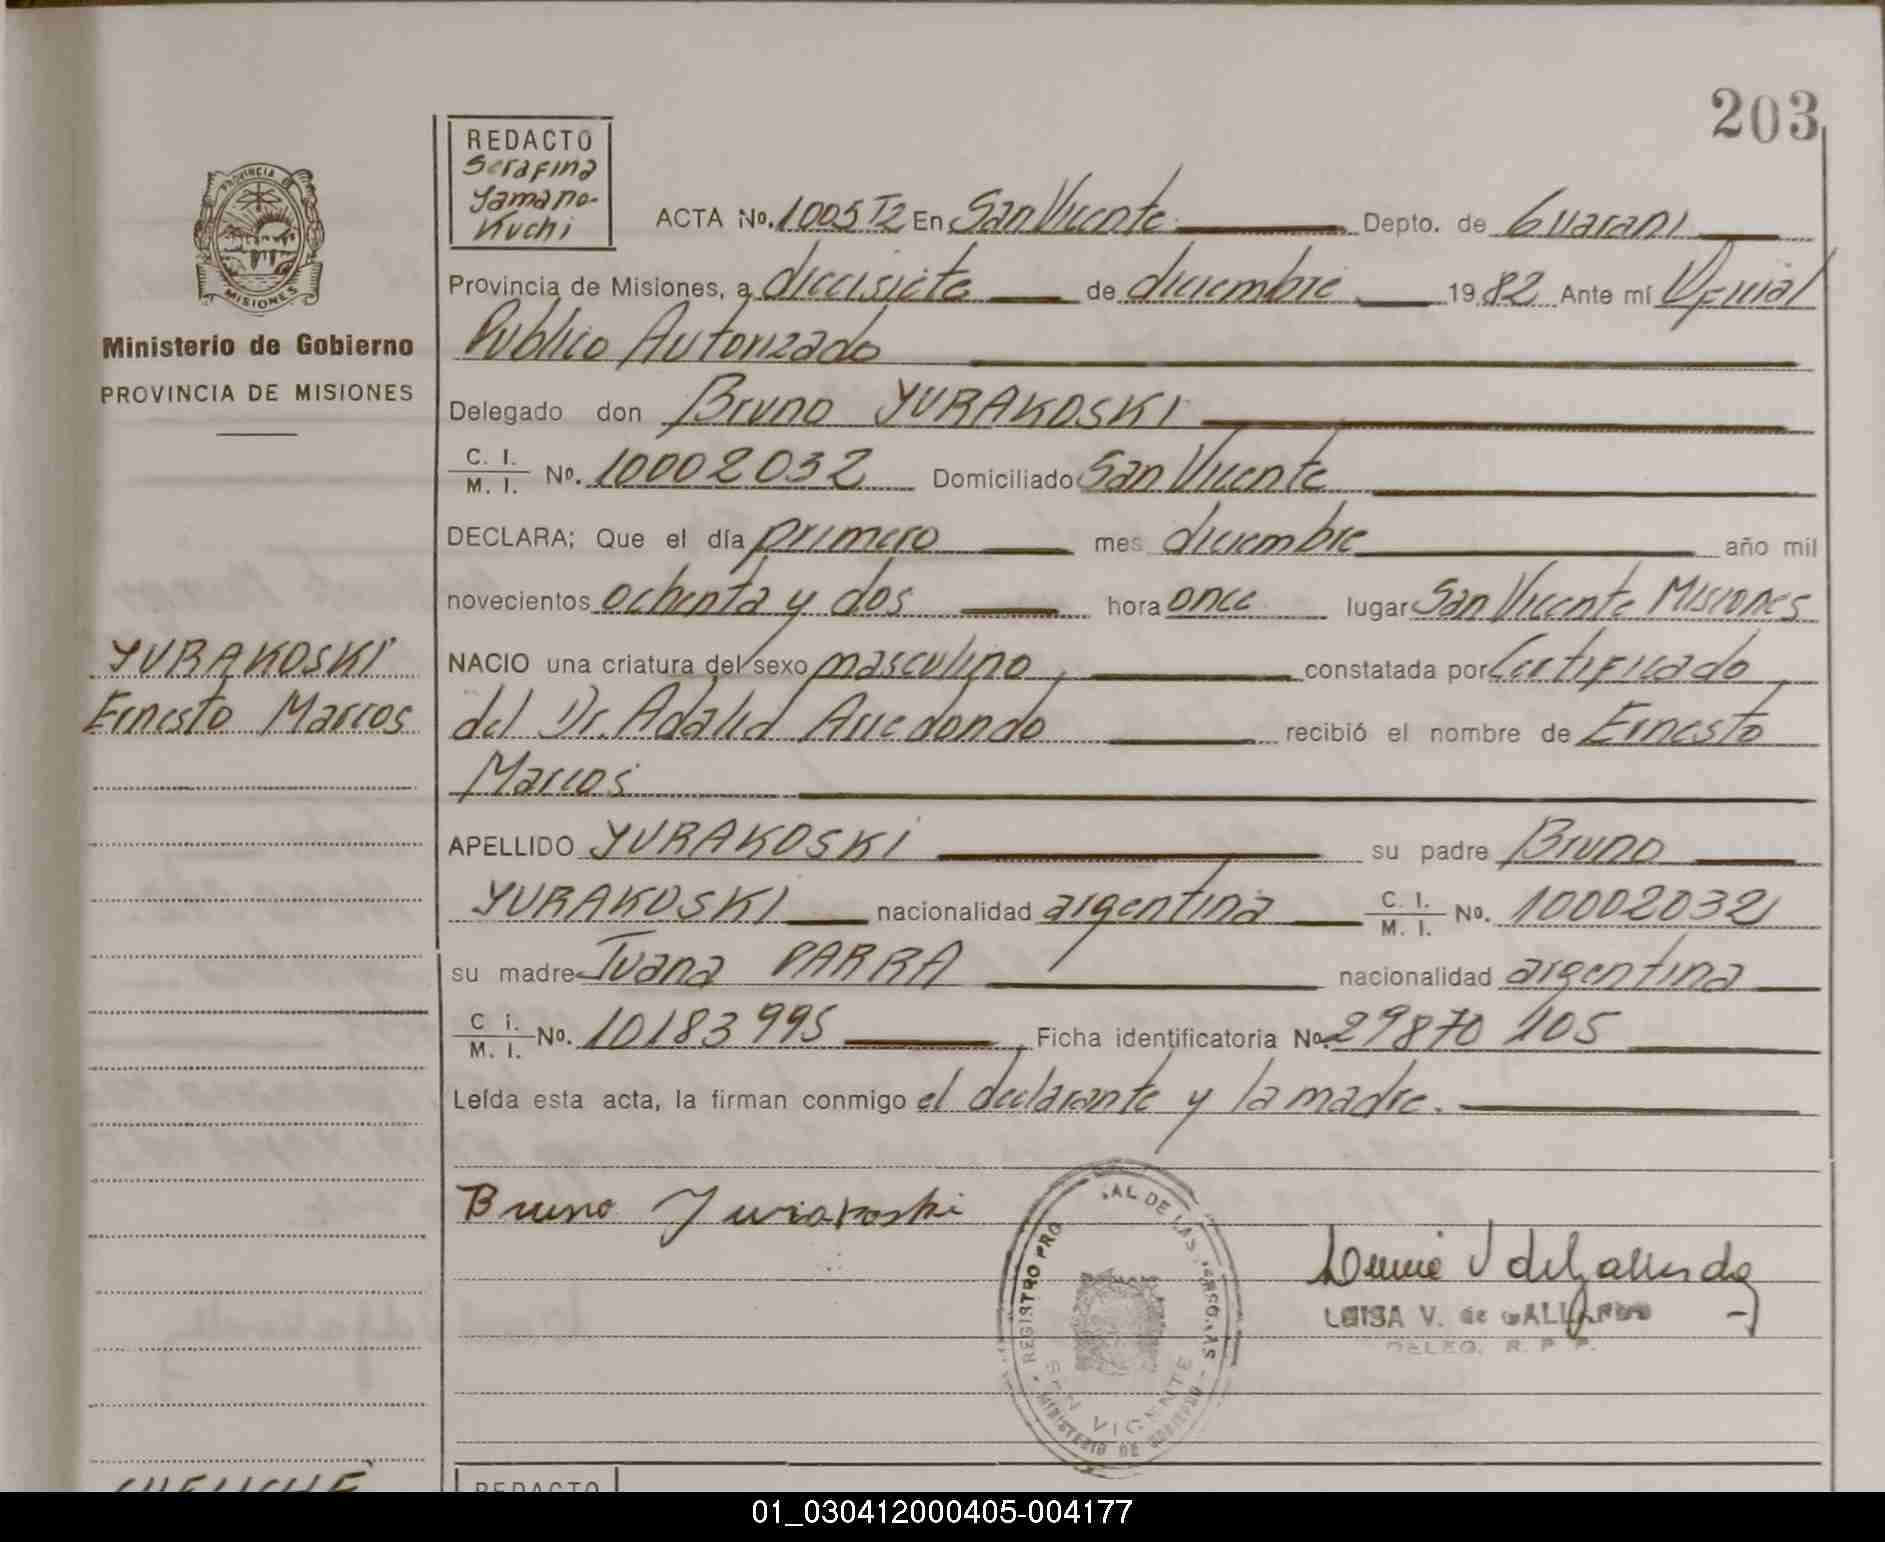 203
REDACTO
Serafina
Yamano-
Kuchi
PROVINCIA DE
MISIONES
Ministerio de Gobierno
PROVINCIA DE MISIONES
ACTA No. 1005 T2 En San Vicente Depto. de Guarani
Provincia de Misiones, a diecisiete de diciembre 1982 Ante mí Oficial
Publico Autorizado
Delegado don Bruno YURAKOSKI
C. I. / M. I. No. 10002032 Domiciliado San Vicente
DECLARA; Que el día primero mes diciembre año mil
novecientos ochenta y dos hora once lugar San Vicente Misiones
YURAKOSKI
Ernesto Marcos
NACIO una criatura del sexo masculino, constatada por Certificado
del Dr. Adalid Arredondo recibió el nombre de Ernesto
Marcos
APELLIDO YURAKOSKI su padre Bruno
YURAKOSKI nacionalidad argentina C. I. / M. I. No. 10002032
su madre Juana PARRA nacionalidad argentina
C i. / M. I. No. 10183995 Ficha identificatoria No. 29870 105
Leída esta acta, la firman conmigo el declarante y la madre.
Bruno Yurakoski
REGISTRO PRO AL DE LAS PERSONAS
SAN VICENTE
MINISTERIO DE GOBIERNO
LUISA V. de GALLARDO
DELEG. R. P. P.
REDACTO
01_030412000405-004177